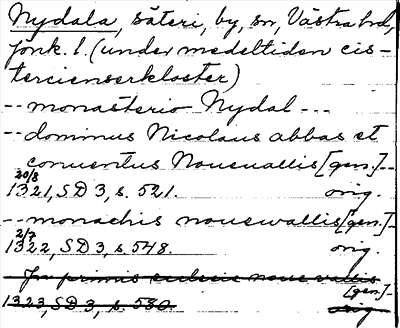 Nydala, säteri, by, sn, Västra hd,
Jönk. l. (under medeltiden cis-
tercienserkloster)
-- monasterio Nydal ---
-- dominus Nicolaus abbas et
conuentus Noueuallis [gen.] --
20/8
1321, SD 3, s. 521. orig.
-- monachis nouewallis [gen.] -
2/7
1322, SD 3, s. 548. orig.
In primis ecclesie noue vallis
[gen.] -
1323, SD 3, s. 580. orig.